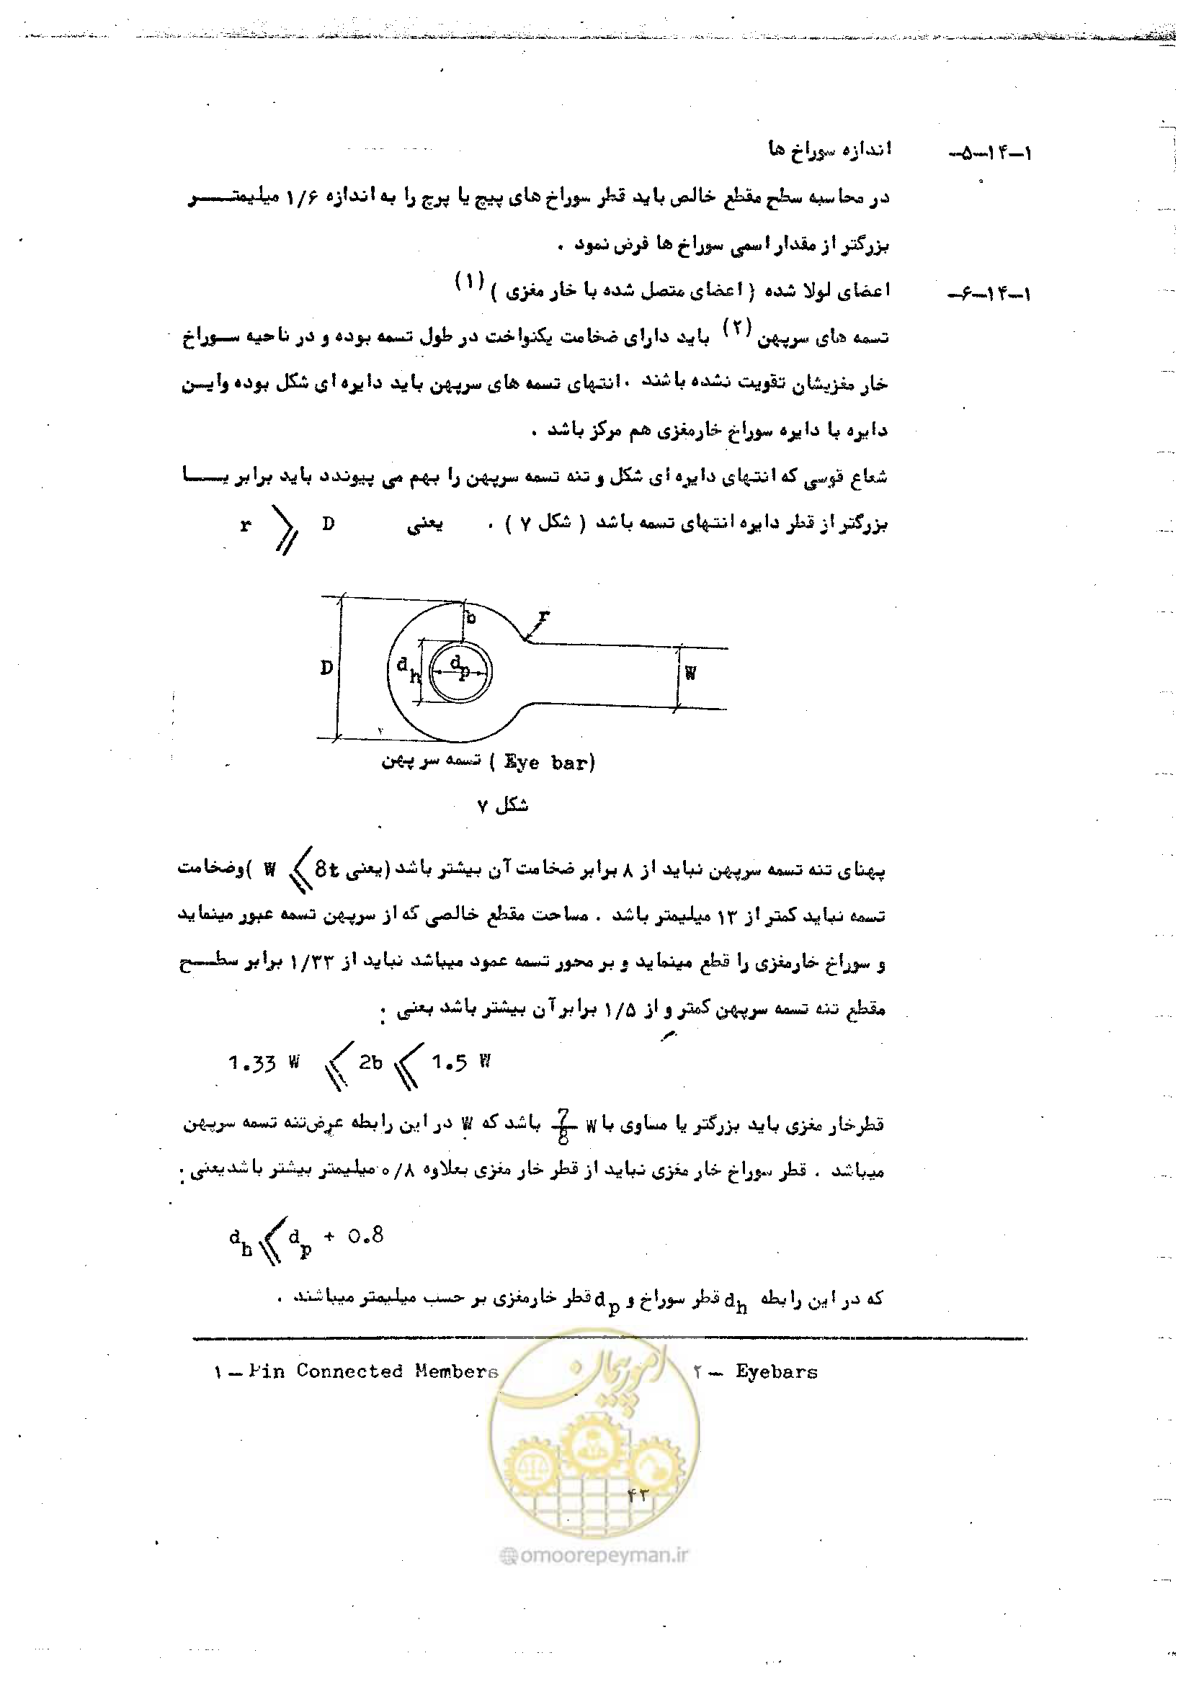 ۱-۱۴-۵- اندازه سوراخ ها
در محاسبه سطح مقطع خالص باید قطر سوراخ های پیچ یا پرچ را به اندازه ۱/۶ میلیمتـــر
بزرگتر از مقدار اسمی سوراخ ها فرض نمود .
۱-۱۴-۶- اعضای لولا شده ( اعضای متصل شده با خار مغزی ) (۱)
تسمه های سرپهن (۲) باید دارای ضخامت یکنواخت در طول تسمه بوده و در ناحیه ســوراخ
خار مغزیشان تقویت نشده باشند . انتهای تسمه های سرپهن باید دایره ای شکل بوده وایـن
دایره با دایره سوراخ خارمغزی هم مرکز باشد .
شعاع قوسی که انتهای دایره ای شکل و تنه تسمه سرپهن را بهم می پیوندد باید برابر یـــا
بزرگتر از قطر دایره انتهای تسمه باشد ( شکل ۷ ) . یعنی r ⩾ D
b
r
D
d_h
d_p
W
تسمه سر پهن ( Eye bar)
شکل ۷
پهنای تنه تسمه سرپهن نباید از ۸ برابر ضخامت آن بیشتر باشد (یعنی W ⩽ 8t )وضخامت
تسمه نباید کمتر از ۱۳ میلیمتر باشد . مساحت مقطع خالصی که از سرپهن تسمه عبور مینماید
و سوراخ خارمغزی را قطع مینماید و بر محور تسمه عمود میباشد نباید از ۱/۳۳ برابر سطـــح
مقطع تنه تسمه سرپهن کمتر و از ۱/۵ برابر آن بیشتر باشد یعنی :
1.33 W ⩽ 2b ⩽ 1.5 W
قطرخار مغزی باید بزرگتر یا مساوی با 7/8 W باشد که W در این رابطه عرض تنه تسمه سرپهن
میباشد . قطر سوراخ خار مغزی نباید از قطر خار مغزی بعلاوه ۰/۸ میلیمتر بیشتر باشد یعنی :
d_h ⩽ d_p + 0.8
که در این رابطه d_h قطر سوراخ و d_p قطر خارمغزی بر حسب میلیمتر میباشند .
۱ - Pin Connected Members ۲ - Eyebars
امور پیمان
۴۳
@omoorepeyman.ir